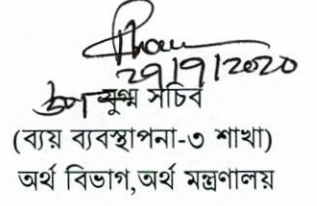 29/9/2020
যুগ্ম সচিব
(ব্যয় ব্যবস্থাপনা-৩ শাখা)
অর্থ বিভাগ,অর্থ মন্ত্রণালয়